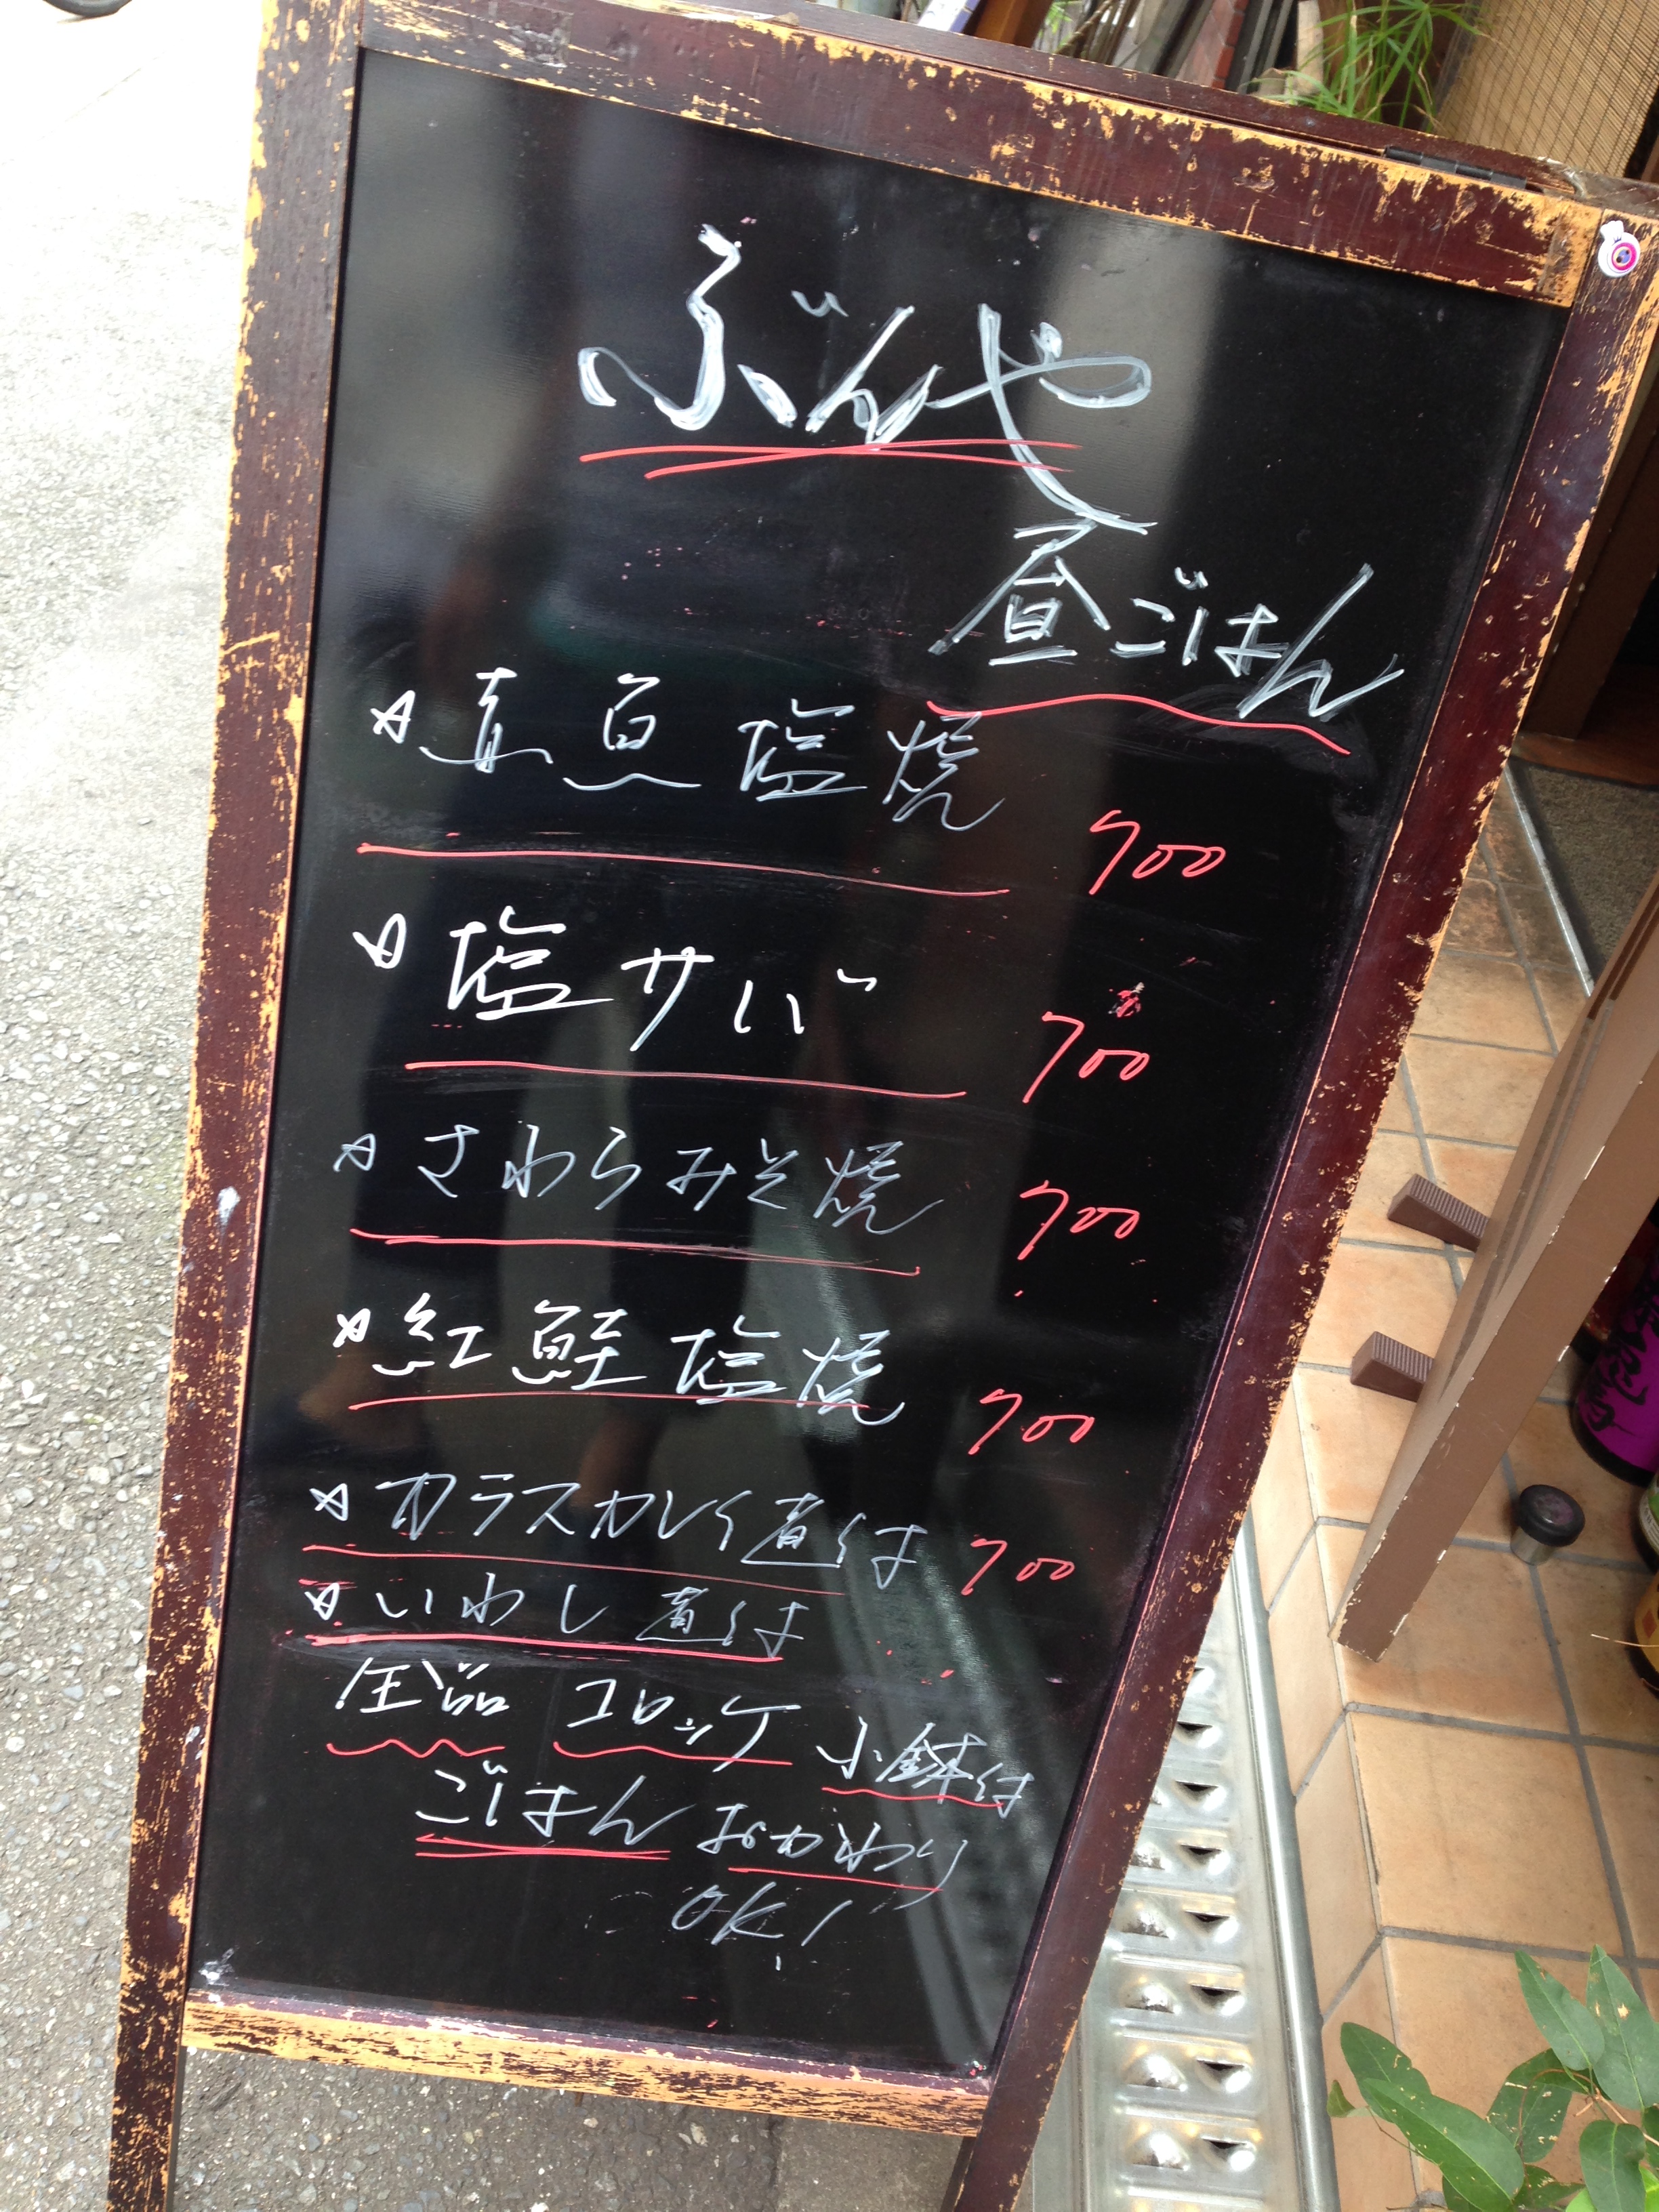 ぶんや
昼ごはん
☆真魚塩焼 700
☆塩サバ 700
☆さわらみそ焼 700
☆紅鮭塩焼 700
☆カラスカレイ煮付 700
☆いわし煮付
全品 コロッケ 小鉢付
ごはん おかわり
OK!